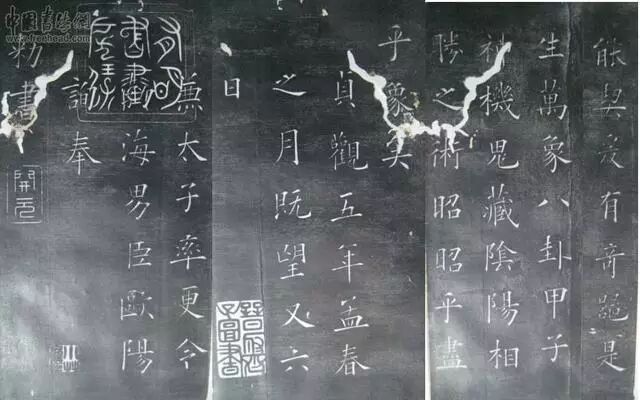 能契爰有奇器是
生萬象八卦甲子
神機鬼藏陰陽相
勝之術昭昭乎盡
乎象矣
貞觀五年孟春
之月既望又六
日
兼太子率更令
海男臣歐陽
詢奉
勑書
開元